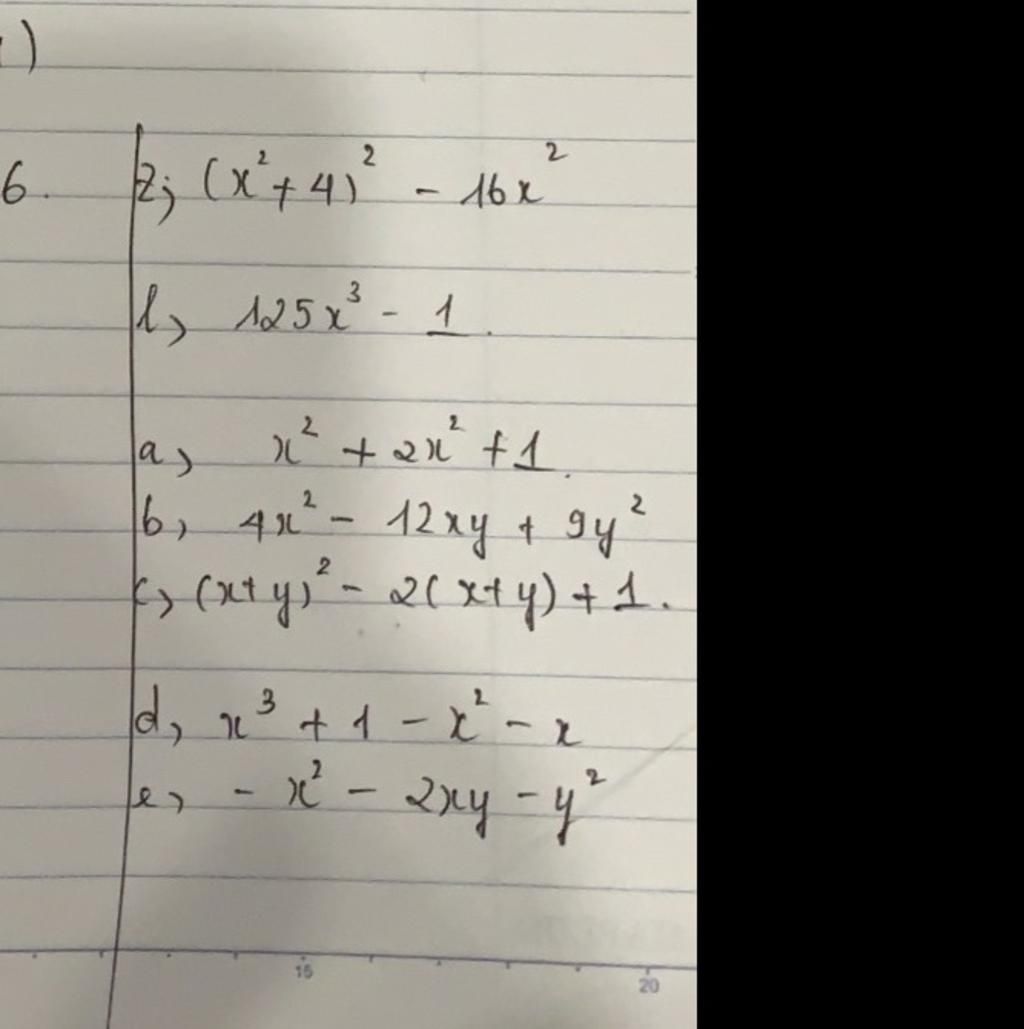 )
6. z; (x² + 4)² - 16x²
l, 125x³ - 1.
a, x² + 2x² + 1.
b, 4x² - 12xy + 9y²
c, (x+y)² - 2(x+y) + 1.
d, x³ + 1 - x² - x
e, - x² - 2xy - y²
15 20